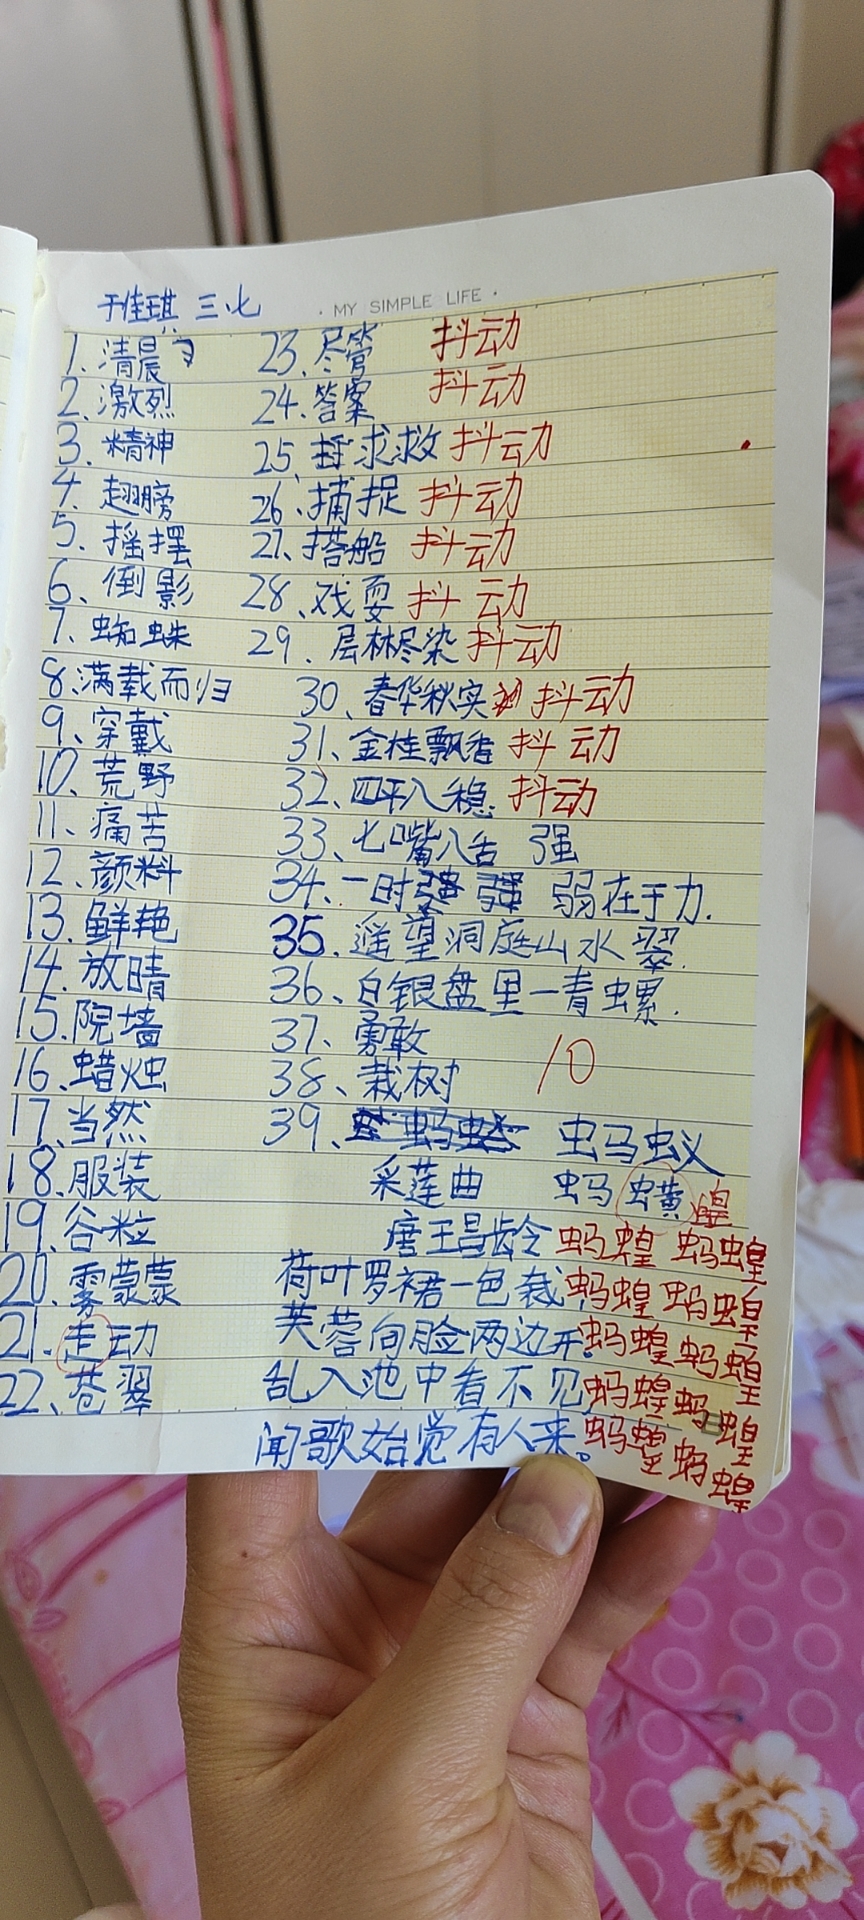 于佳琪 三.七
· MY SIMPLE LIFE ·
1.清晨
2.激烈
3.精神
4.翅膀
5.摇摆
6.倒影
7.蜘蛛
8.满载而归
9.穿戴
10.荒野
11.痛苦
12.颜料
13.鲜艳
14.放晴
15.院墙
16.蜡烛
17.当然
18.服装
19.谷粒
20.雾蒙蒙
21.走动
22.苍翠
23.尽管 抖动
24.答案 抖动
25.求救 抖动
26.捕捉 抖动
27.搭船 抖动
28.戏耍 抖动
29.层林尽染 抖动
30.春华秋实 抖动
31.金桂飘香 抖动
32.四平八稳 抖动
33.七嘴八舌 强
34.一时强 弱在于力.
35.遥望洞庭山水翠.
36.白银盘里一青螺.
37.勇敢
38.栽树 10
39. 蚂蚁
采莲曲 蚂蟥 蝗
唐王昌龄 蚂蝗 蚂蝗
荷叶罗裙一色裁, 蚂蝗 蚂蝗
芙蓉向脸两边开。 蚂蝗 蚂蝗
乱入池中看不见, 蚂蝗 蚂蝗
闻歌始觉有人来。 蚂蝗 蚂蝗